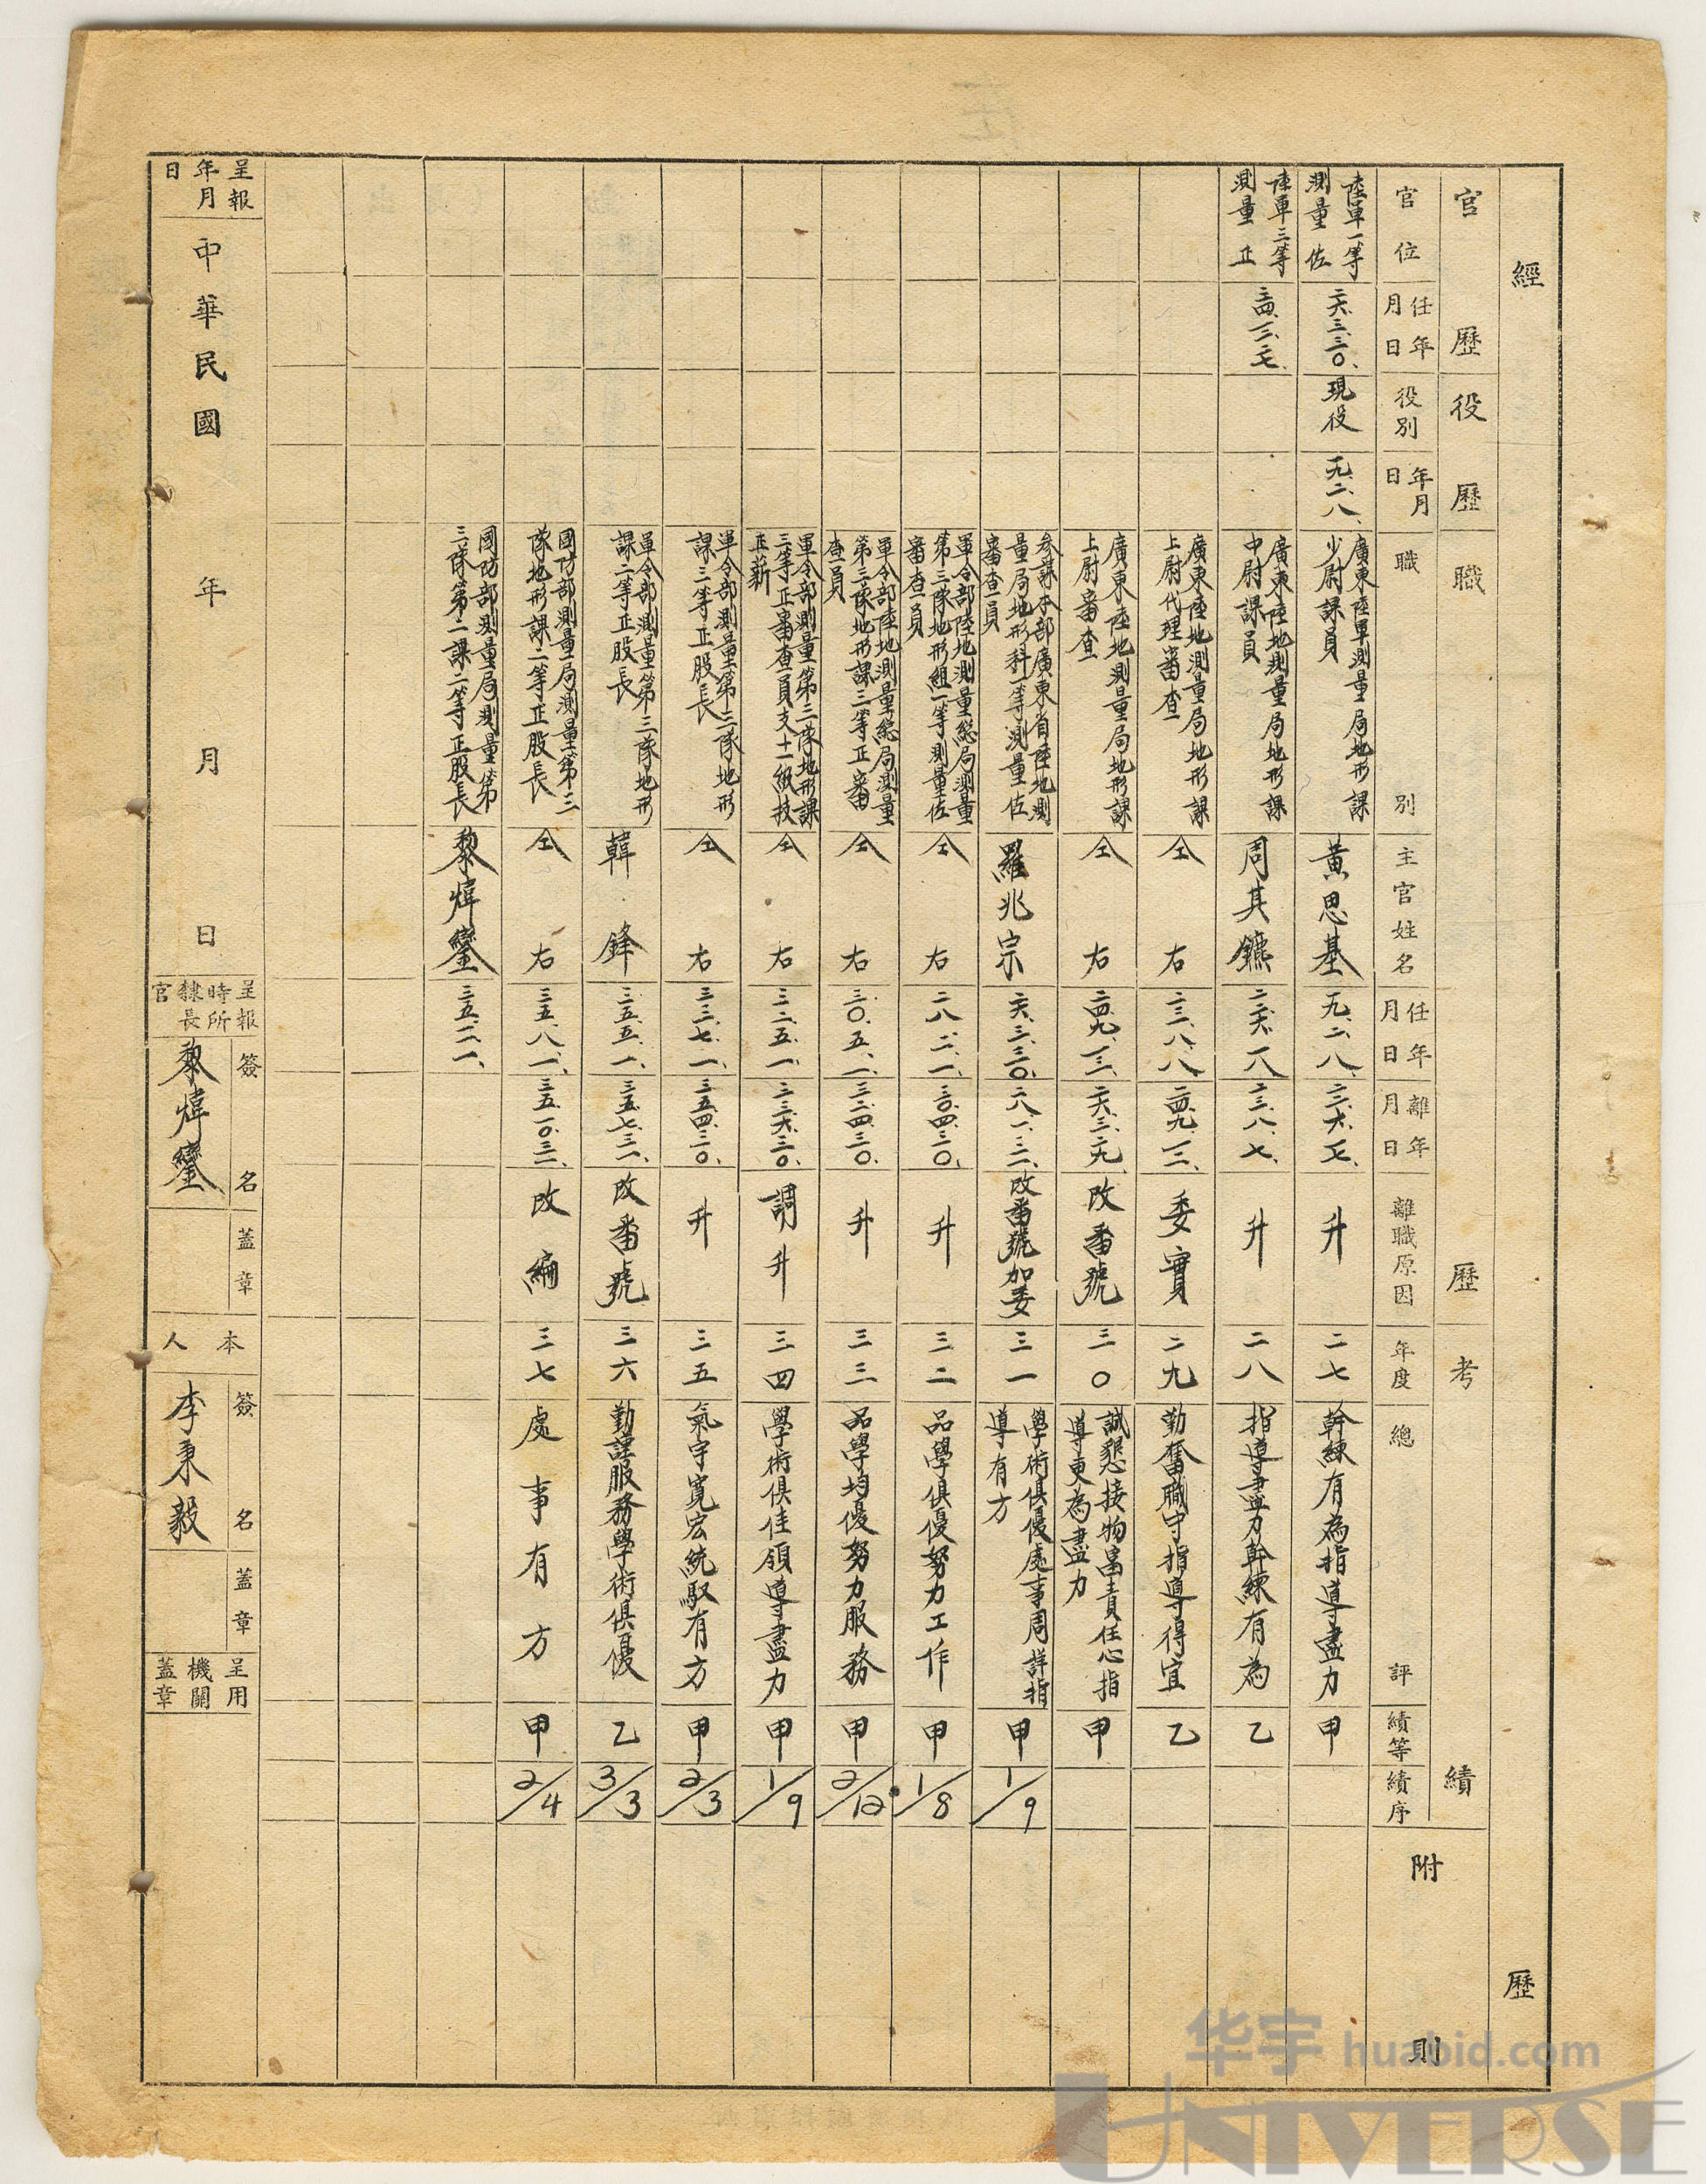 經歷
官歷
役歷
職歷
考績
官位
任年月日
役別
年月日
職別
主官姓名
任年月日
離年月日
離職原因
年度
總評
績等
績序
附則
陸軍一等
測量佐
二六.三.三〇.
現役
一九.二.八.
廣東陸軍測量局地形課
少尉課員
黃思基
一九.二.八.
升
二七
幹練有為指導盡力
甲
陸軍三等
測量正
廣東陸地測量局地形課
中尉課員
周其鑣
二三.八.七.
升
二八
指導盡力幹練有為
乙
廣東陸地測量局地形課
上尉代理審查
仝右
二三.八.八
二四.九.一二.
委實
二九
勤奮職守指導得宜
乙
廣東陸地測量局地形課
上尉審查
仝右
二四.九.一三.
二六.三.二九.
改番號
三〇
誠懇接物富責任心指
導更為盡力
甲
參謀本部廣東省陸地測
量局地形科一等測量佐
審查員
羅兆宗
二六.三.三〇.
二八.一.三一.
改番號加委
三一
學術俱優處事周詳指
導有方
甲
1/9
軍令部陸地測量總局測量
第三隊地形組一等測量佐
審查員
仝右
二八.二.一.
三〇.四.三〇.
升
三二
品學俱優努力工作
甲
1/8
軍令部陸地測量總局測量
第三隊地形課三等正審
查員
仝右
三〇.五.一.
三二.四.三〇.
升
三三
品學均優努力服務
甲
2/12
軍令部測量第三隊地形課
三等正審查員支十一級技
正薪
仝右
三二.五.一.
三三.六.三〇.
調升
三四
學術俱佳領導盡力
甲
1/9
軍令部測量第三隊地形
課三等正股長
仝右
三三.七.一.
三五.四.三〇.
升
三五
氣宇寬宏統馭有方
甲
2/3
軍令部測量第三隊地形
課二等正股長
韓鋒
三五.五.一.
三五.七.三一.
改番號
三六
勤謹服務學術俱優
乙
3/3
國防部測量局測量第三
隊地形課二等正股長
仝右
三五.八.一.
三五.一〇.三一.
改編
三七
處事有方
甲
2/4
國防部測量局測量第
三隊第二課二等正股長
黎煒鑾
三五.一一.一.
呈報年月日
中華民國年月日
呈報時所隸長官
簽名
黎煒鑾
蓋章
本人
簽名
李秉毅
蓋章
呈用機關蓋章
华宇 huabid.com
UNIVERSE